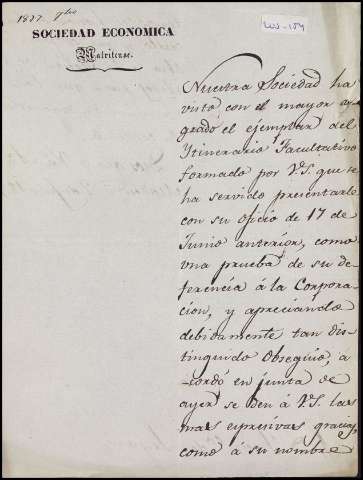 1837. 7bre
SOCIEDAD ECONOMICA
Matritense.
Nuestra Sociedad ha
visto con el mayor a-
grado el ejemplar del
Itinerario Facultativo
formado por V.S. que se
ha servido presentarle
con su oficio de 17 de
Junio anterior, como
una prueba de su de-
ferencia á la Corpora-
cion, y apreciando
debidamente tan dis-
tinguido Obsequio, a-
-cordó en junta de
ayer se den á V.S. las
mas expresivas gracias,
como á su nombre